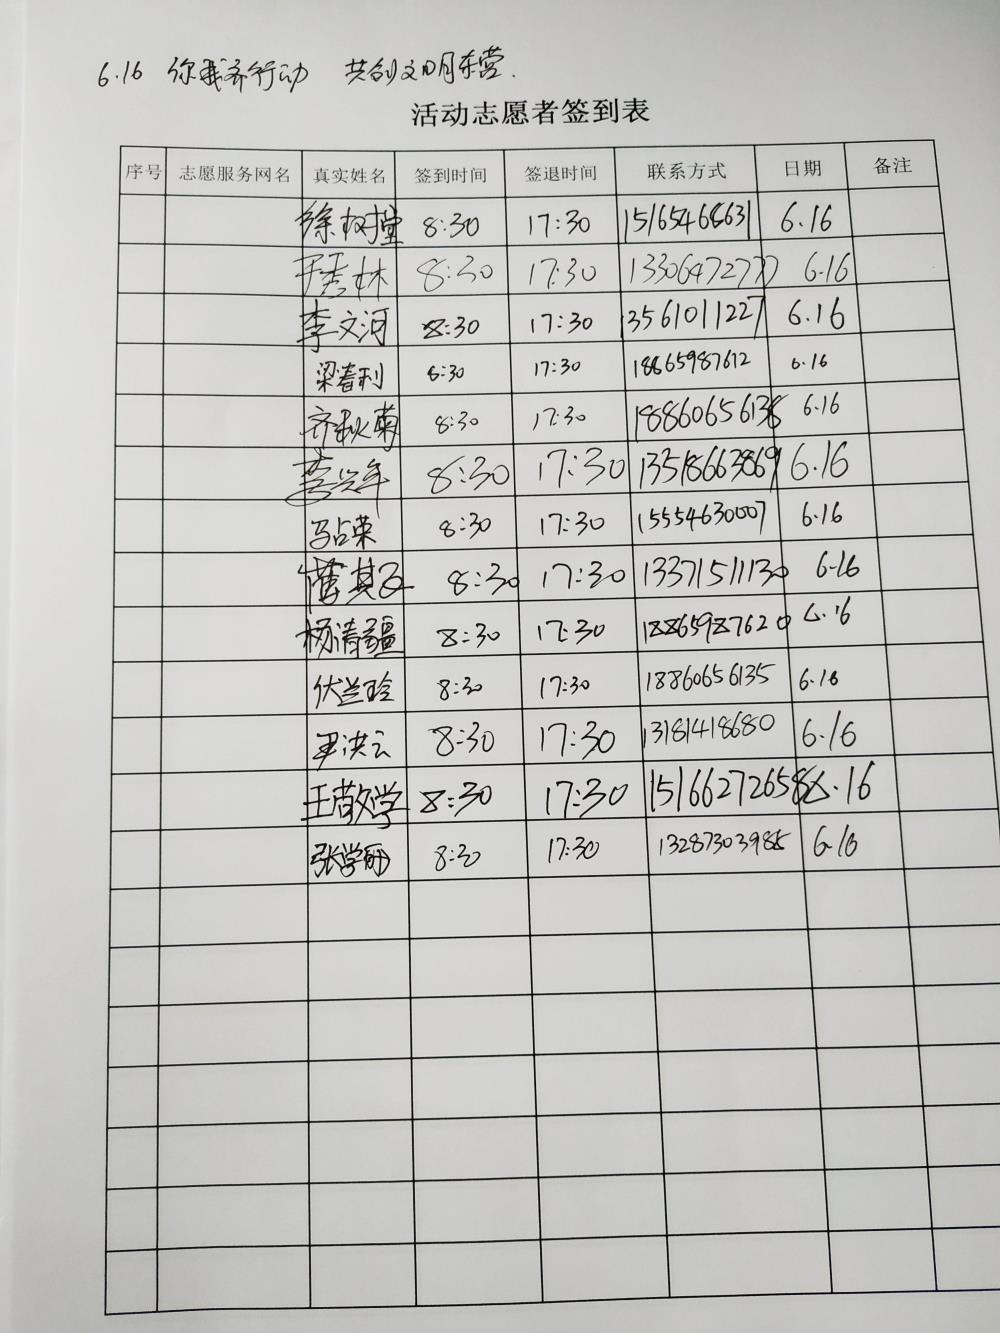 6.16 你我齐行动 共创文明东营.
活动志愿者签到表
序号 志愿服务网名 真实姓名 签到时间 签退时间 联系方式 日期 备注
徐树堂 8:30 17:30 15165468631 6.16
于秀林 8:30 17:30 13306472777 6.16
李文河 8:30 17:30 13561011227 6.16
梁春利 8:30 17:30 18865987612 6.16
齐秋菊 8:30 17:30 18860656138 6.16
李兴年 8:30 17:30 13518663869 6.16
马占荣 8:30 17:30 15554630007 6.16
8:30 17:30 13371511130 6.16
杨清疆 8:30 17:30 18865987620 6.16
伏兰玲 8:30 17:30 18860656135 6.16
尹洪云 8:30 17:30 13181418680 6.16
王敬学 8:30 17:30 15166272658 6.16
张学丽 8:30 17:30 13287303985 6.16